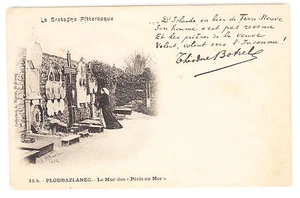 La Bretagne Pittoresque
D'Islande ou bien de Terre-Neuve
Son homme n'est pas revenu
Et les prières de la veuve
Volent, volent vers l'Inconnu !
Théodore Botrel
15 b. - PLOUBAZLANEC. - Le Mur des « Péris en Mer »